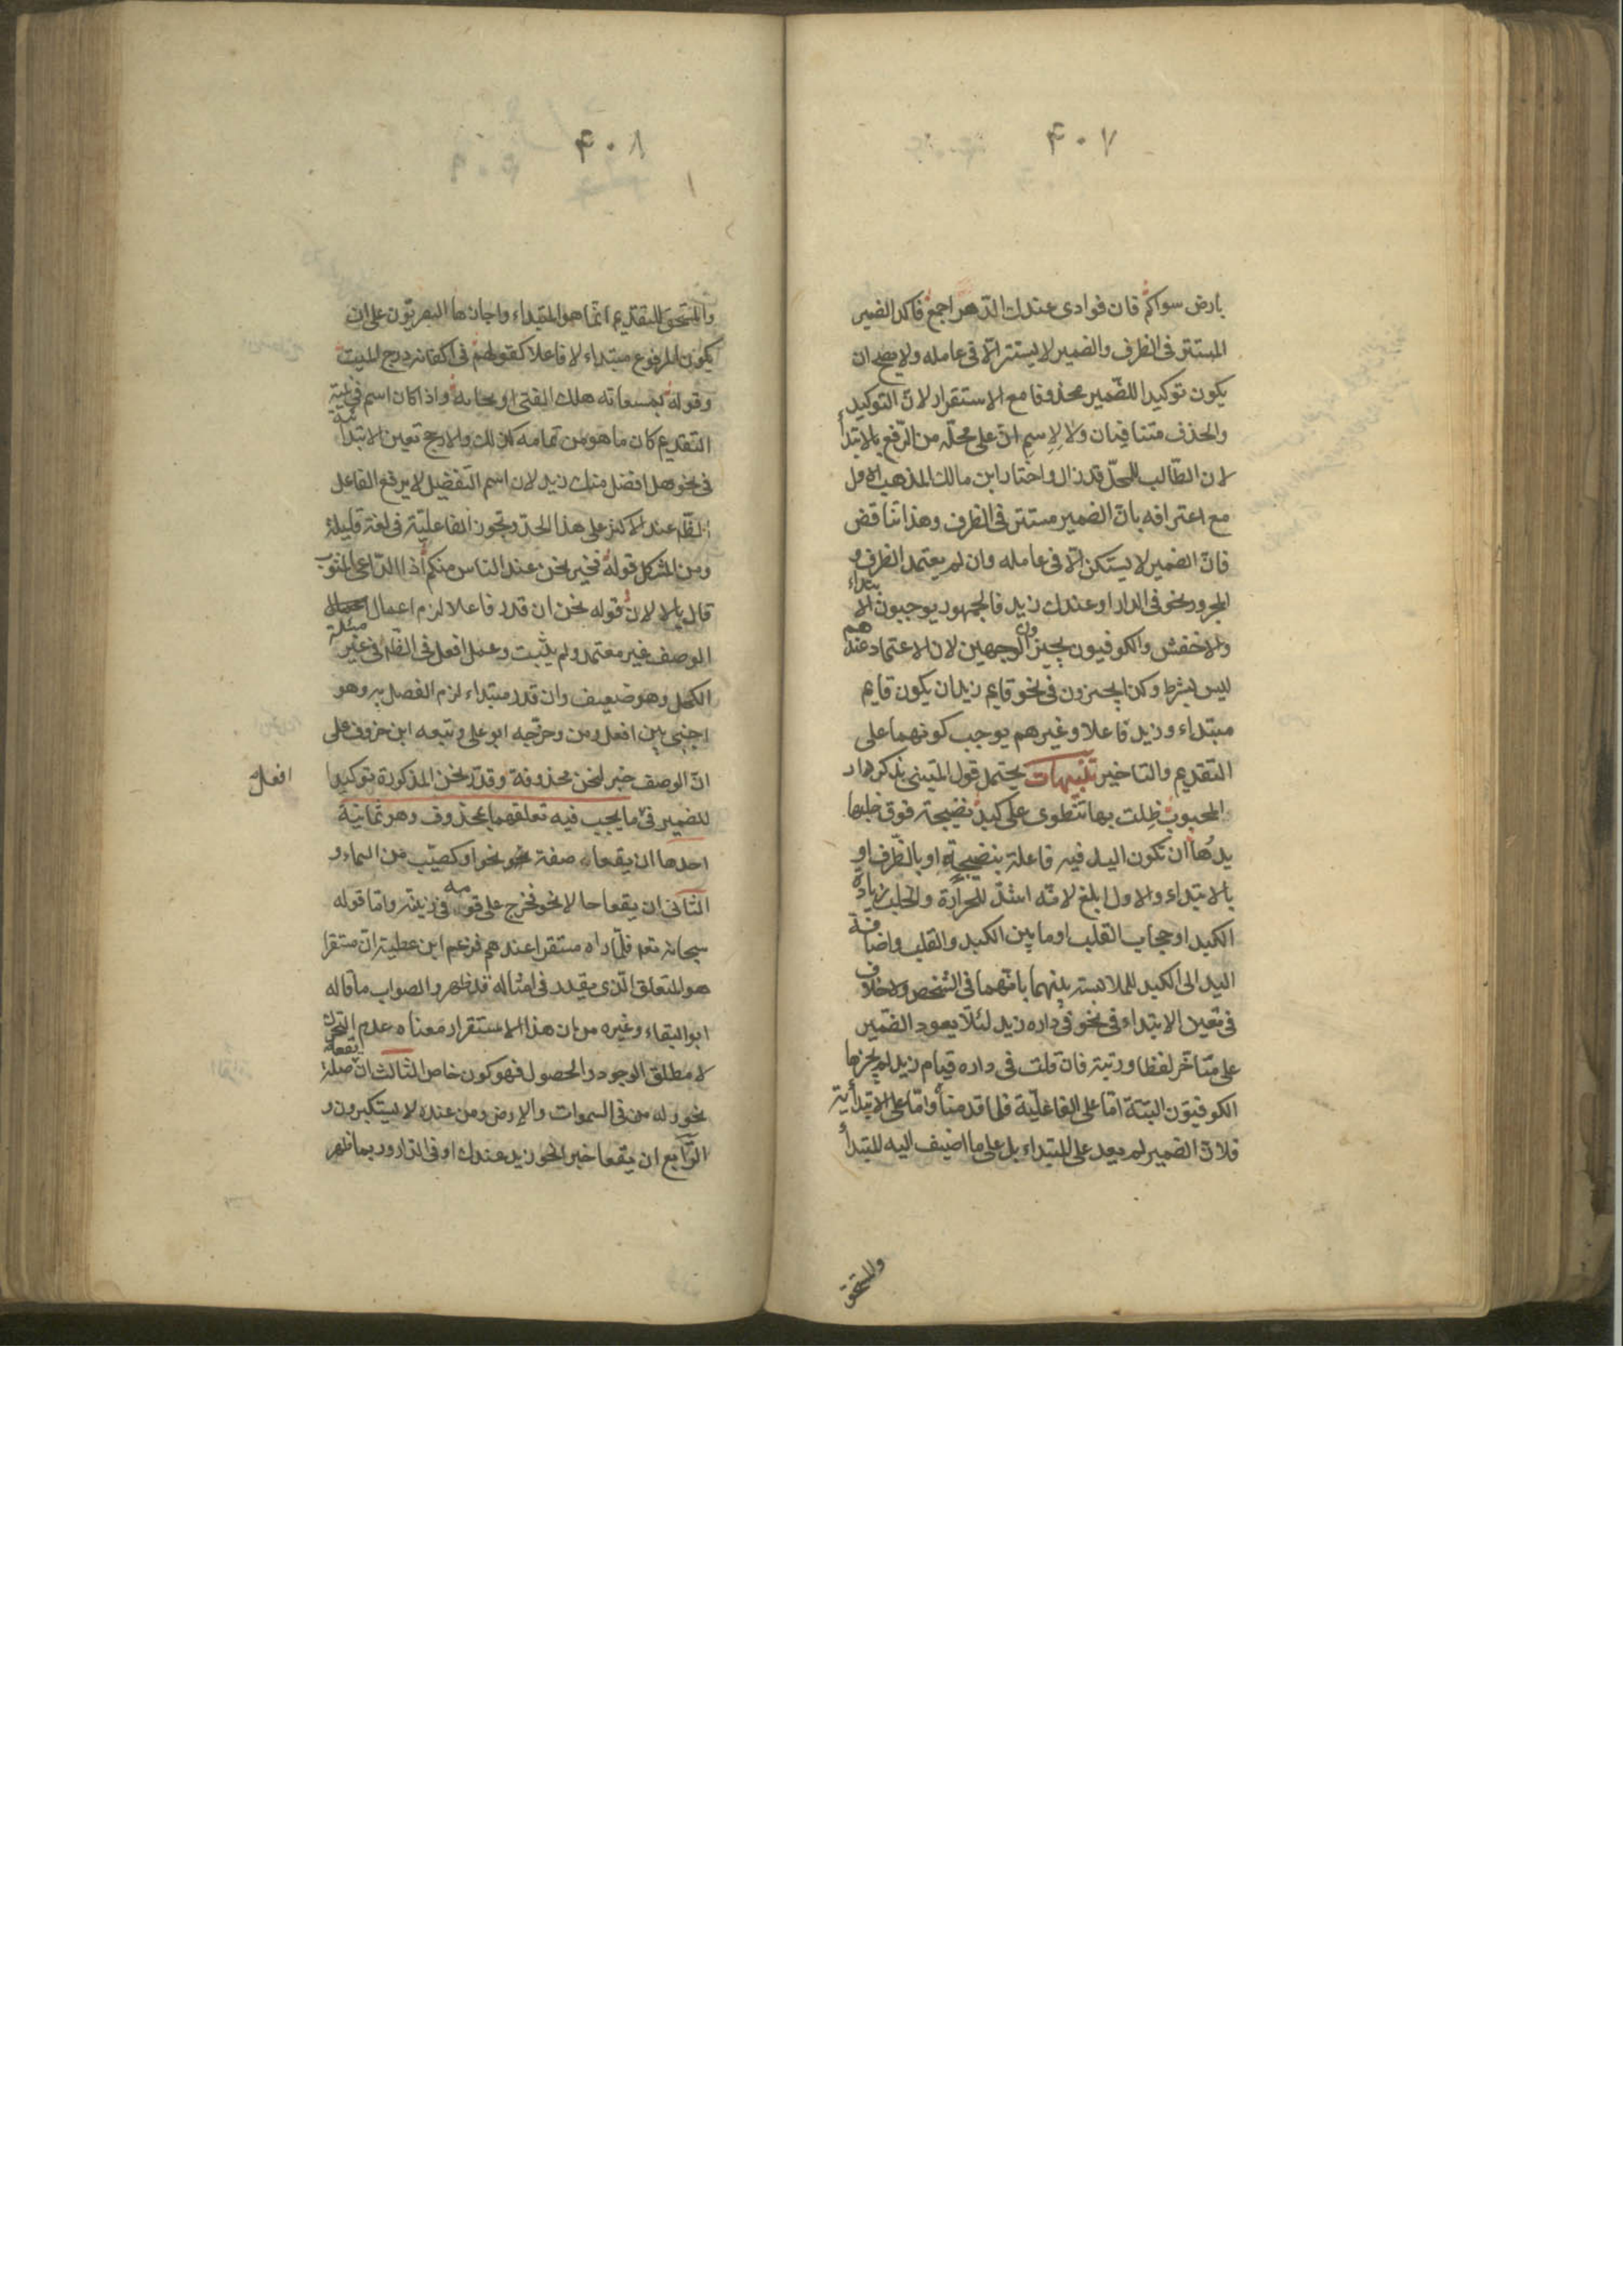 ۴۰۷
بارض سواكم فان فوادى عندك الدّهر اجمع فاكد الضمير
المستتر فى الظرف والضمير لا يستتر الّا فى عامله ولا يصح ان
يكون توكيدا للضّمير محذوفا مع الاستقرار لانّ التوكيد
والحذف متنافيان ولا لاسم انّ على محلّه من الرّفع بالابتدأ
لان الطّالب للمحلّ قد زال واختار ابن مالك المذهب الاول
مع اعترافه بانّ الضمير مستتر فى الظرف وهذا تناقض
فانّ الضمير لا يستكن الّا فى عامله وان لم يعتمد الظرف و
المجرور نحو فى الدار او عندك زيد فالجمهور يوجبون الابتداء
والاخفش والكوفيون يجيزون الوجهين لان الاعتماد عندهم
ليس بشرط وكذا يجيزون فى نحو قايم زيد ان يكون قايم
مبتداء وزيد فاعلا وغيرهم يوجب كونهما على
التقديم والتاخير تنبيهات يحتمل قول المتنبى يذكر دار
المحبوب ظلت بها تنطوى على كبد نضيجة فوق خلبها
يدها ان تكون اليد فيه فاعلة بنضيجة او بالظرف او
بالابتداء والاول ابلغ لانّه اشدّ للحرارة والخلب زيادة
الكبد او حجاب القلب او ما بين الكبد والقلب واضافة
اليد الى الكبد للملابسة بينهما بانّهما فى الشخص ولا خلاف
فى تعين الابتداء فى نحو فى داره زيد لئلّا يعود الضّمير
على متاخّر لفظا ورتبة فان قلت فى داره قيام زيد لم يجزها
الكوفيّون البتة امّا على الفاعليّة فلما قدمنا وامّا على الابتدائية
فلانّ الضمير لم يعد على المبتداء بل على ما اضيف اليه المبتدأ
والمستحق
۴۰۸
والمستحق للتقديم انّما هو المبتداء واجازها البصريّون على ان
يكون المرفوع مبتداء لا فاعلا كقولهم فى اكفانه درج الميت
وقوله بمسعاته هلك الفتى او نجاته واذا كان الاسم فى نية
التقديم كان ما هو من تمامه كذلك والارجح تعين الابتدائية
فى نحو هل افضل منك زيد لان اسم التفضيل لا يرفع الفاعل
الظاهر عند الاكثر على هذا الحدّ وتجوز الفاعليّة فى لغة قليلة
ومن المشكل قوله فخير نحن عند الناس منكم اذا الدّاعى المثوب
قال يالا لانّ قوله نحن ان قدر فاعلا لزم اعمال
الوصف غير معتمد ولم يثبت وعمل افعل فى الظاهر فى غير مسئلة
الكحل وهو ضعيف وان قدر مبتداء لزم الفصل به وهو
اجنبى بين افعل ومن وخرّجه ابو على وتبعه ابن خروف على
انّ الوصف خبر لنحن محذوفة وقدّر نحن المذكورة توكيدا
افعل
للضمير فى ما يجب فيه تعلقهما بمحذوف وهو ثمانية
احدها ان يقعا صفة نحو او كصيّب من السماء و
الثانى ان يقعا حالا نحو فخرج على قومه فى زينته وامّا قوله
سبحانه فلمّا راه مستقرا عندهم فزعم ابن عطية انّ مستقرا
هو المتعلق الّذى يقدر فى امثاله قد ظهر والصواب ما قاله
ابو البقاء وغيره من ان هذا الاستقرار معناه عدم التحرك
لا مطلق الوجود والحصول فهو كون خاص الثالث ان يقعا صلة
نحو وله من فى السموات والارض ومن عنده لا يستكبرون و
الرّابع ان يقعا خبرا نحو زيد عندك او فى الدار وربما ظهر